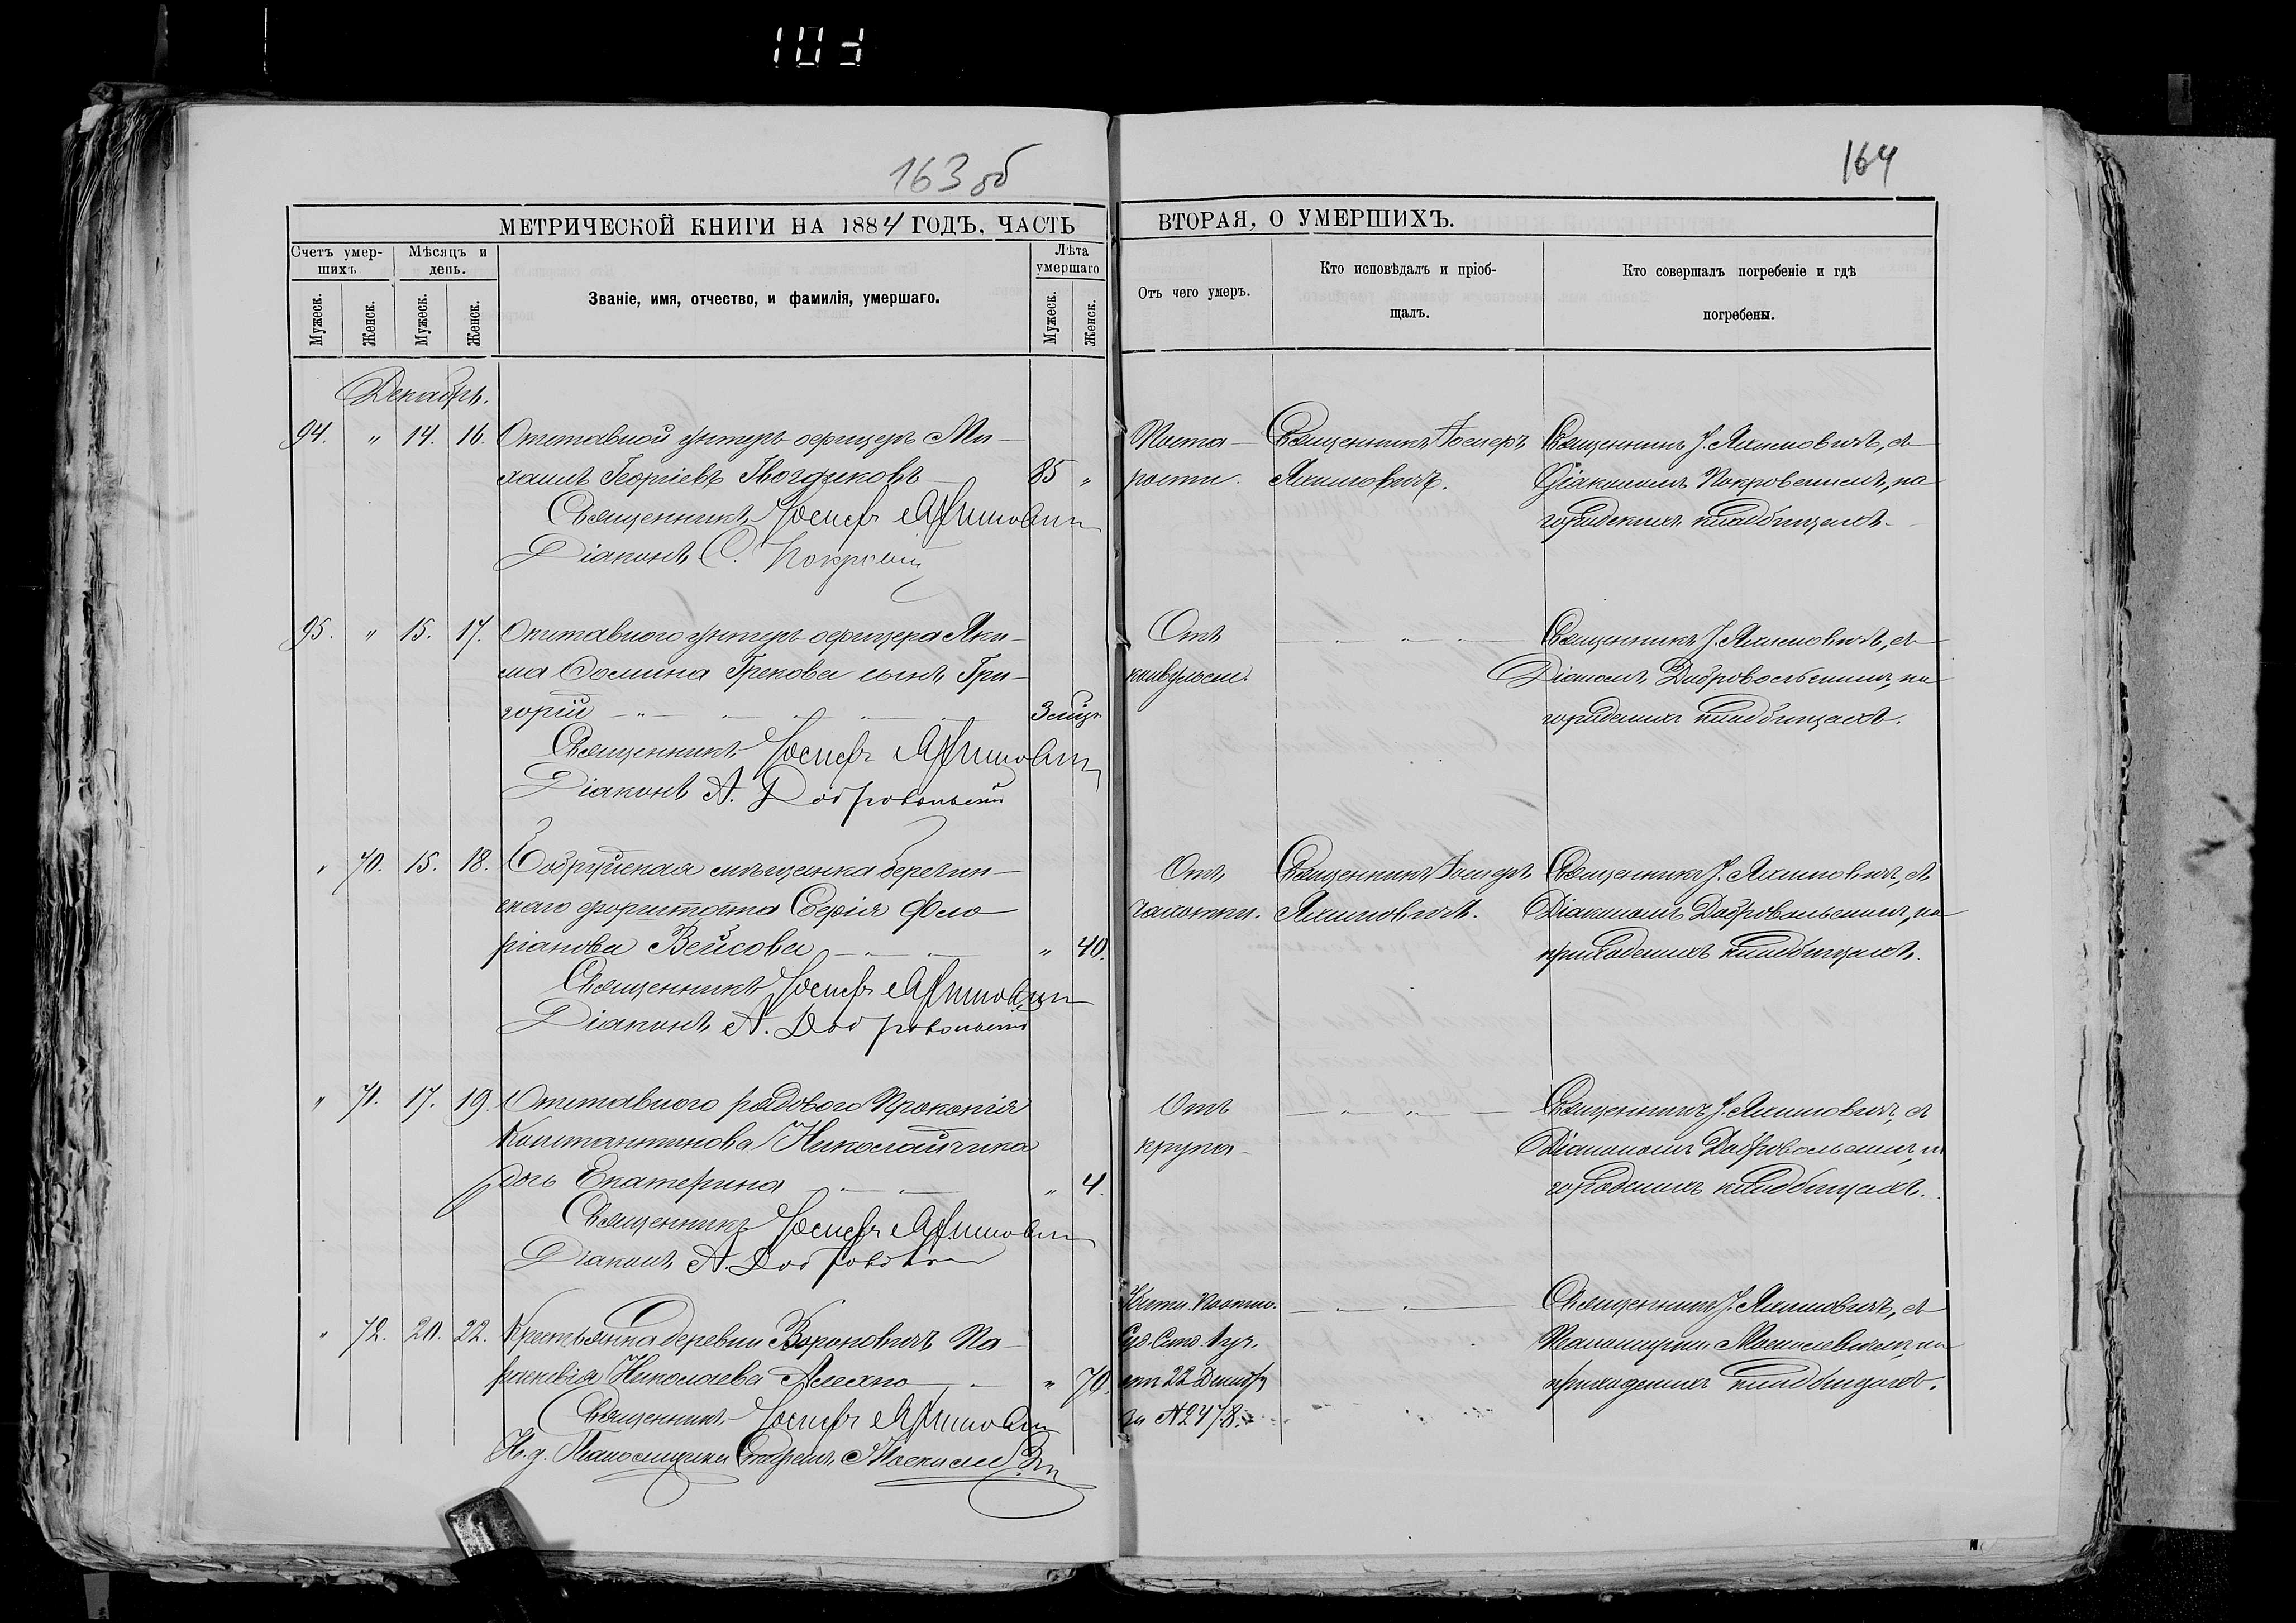 103
163 об
164
МЕТРИЧЕСКОЙ КНИГИ НА 1884 ГОДЪ. ЧАСТЬ ВТОРАЯ, О УМЕРШИХЪ.
Счетъ умер-
шихъ.
Мѣсяцъ и
день.
Званіе, имя, отчество, и фамилія, умершаго.
Лѣта
умершаго
Мужеск.
Женск.
Мужеск.
Женск.
Мужеск.
Женск.
Отъ чего умеръ.
Кто исповѣдалъ и пріоб-
щалъ.
Кто совершалъ погребеніе и гдѣ
погребены.
Декабрь.
94. " 14. 16. Отставной унтеръ офицеръ Ми-
хаилъ Георгіевъ Гвоздиковъ 85 "
Священникъ Іосифъ Яхимовичъ
Діаконъ С. Покровскій
Отъ старости.
Священникъ Іосифъ
Яхимовичъ.
Священникъ І. Яхимовичъ, съ
Діакономъ Покровскимъ, на
городскихъ кладбищахъ.
95. " 15. 17. Отставного унтеръ офицера Яки-
ма Ѳомина Грекова сынъ Гри-
горій 3 мѣц.
Священникъ Іосифъ Яхимовичъ
Діаконъ А. Добровольскій
Отъ
конвульсіи.
Священникъ І. Яхимовичъ, съ
Діакономъ Добровольскимъ, на
городскихъ кладбищахъ.
" 70. 15. 18. Бобруйская мѣщанка Березин-
скаго форштата Софія Фло-
ріанова Вейсова " 40.
Священникъ Іосифъ Яхимовичъ
Діаконъ А. Добровольскій
Отъ
чахотки.
Священникъ Іосифъ
Яхимовичъ.
Священникъ І. Яхимовичъ, съ
Діакономъ Добровольскимъ, на
приходскихъ кладбищахъ.
" 71. 17. 19. Отставного рядового Прокопія
Константинова Николайчика
дочь Екатерина " 4.
Священникъ Іосифъ Яхимовичъ
Діаконъ А. Добровольскій
Отъ
крупа
Священникъ І. Яхимовичъ, съ
Діакономъ Добровольскимъ, на
городскихъ кладбищахъ.
" 72. 20. 22. Крестьянка деревни Вороновичъ Па-
раскевія Николаева Алехно " 70.
Священникъ Іосифъ Яхимовичъ
И. д. Псаломщика
отъ 22 Декабр
за № 2478.
Священникъ І. Яхимовичъ, съ
приходскихъ кладбищахъ.